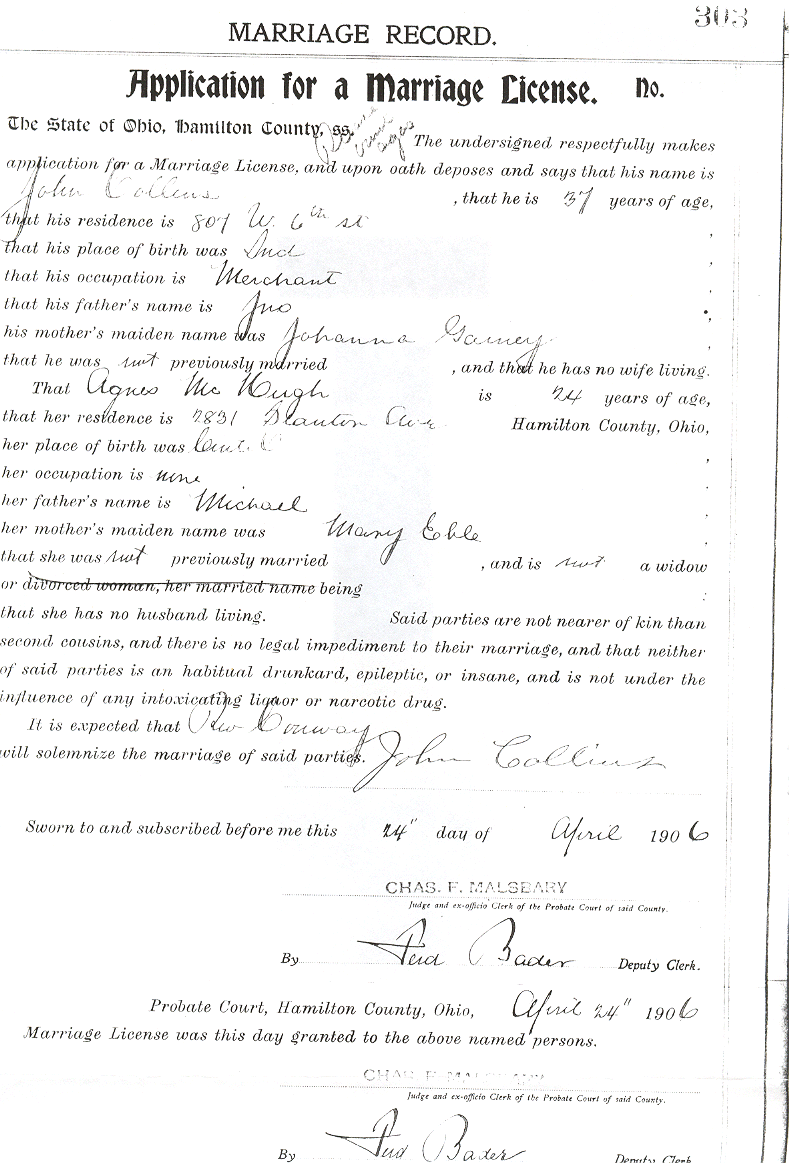 303
MARRIAGE RECORD.
Application for a Marriage License. No.
The State of Ohio, Hamilton County, ss.
The undersigned respectfully makes
application for a Marriage License, and upon oath deposes and says that his name is
John Collins , that he is 37 years of age,
that his residence is 807 W. 6th st ,
that his place of birth was Ind ,
that his occupation is Merchant ,
that his father's name is Jno ,
his mother's maiden name was Johanna Gainey .
that he was not previously married , and that he has no wife living.
That Agnes Mc Hugh is 24 years of age,
that her residence is 2831 Stanton Ave Hamilton County, Ohio,
her place of birth was ,
her occupation is none ,
her father's name is Michael ,
her mother's maiden name was Mary Eble .
that she was not previously married , and is not a widow
or divorced woman, her married name being :
that she has no husband living. Said parties are not nearer of kin than
second cousins, and there is no legal impediment to their marriage, and that neither
of said parties is an habitual drunkard, epileptic, or insane, and is not under the
influence of any intoxicating liquor or narcotic drug.
It is expected that Rev Conway
will solemnize the marriage of said parties. John Collins
Sworn to and subscribed before me this 24" day of April 1906
CHAS. F. MALSBARY
Judge and ex-officio Clerk of the Probate Court of said County.
By Ferd Bader Deputy Clerk.
Probate Court, Hamilton County, Ohio, April 24" 1906
Marriage License was this day granted to the above named persons.
CHAS. F. MALSBARY
Judge and ex-officio Clerk of the Probate Court of said County.
By Ferd Bader Deputy Clerk.